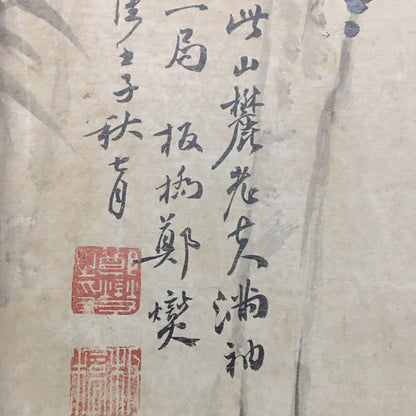 此山麓老夫滿袖
一局 板橋鄭燮
壬子秋七月